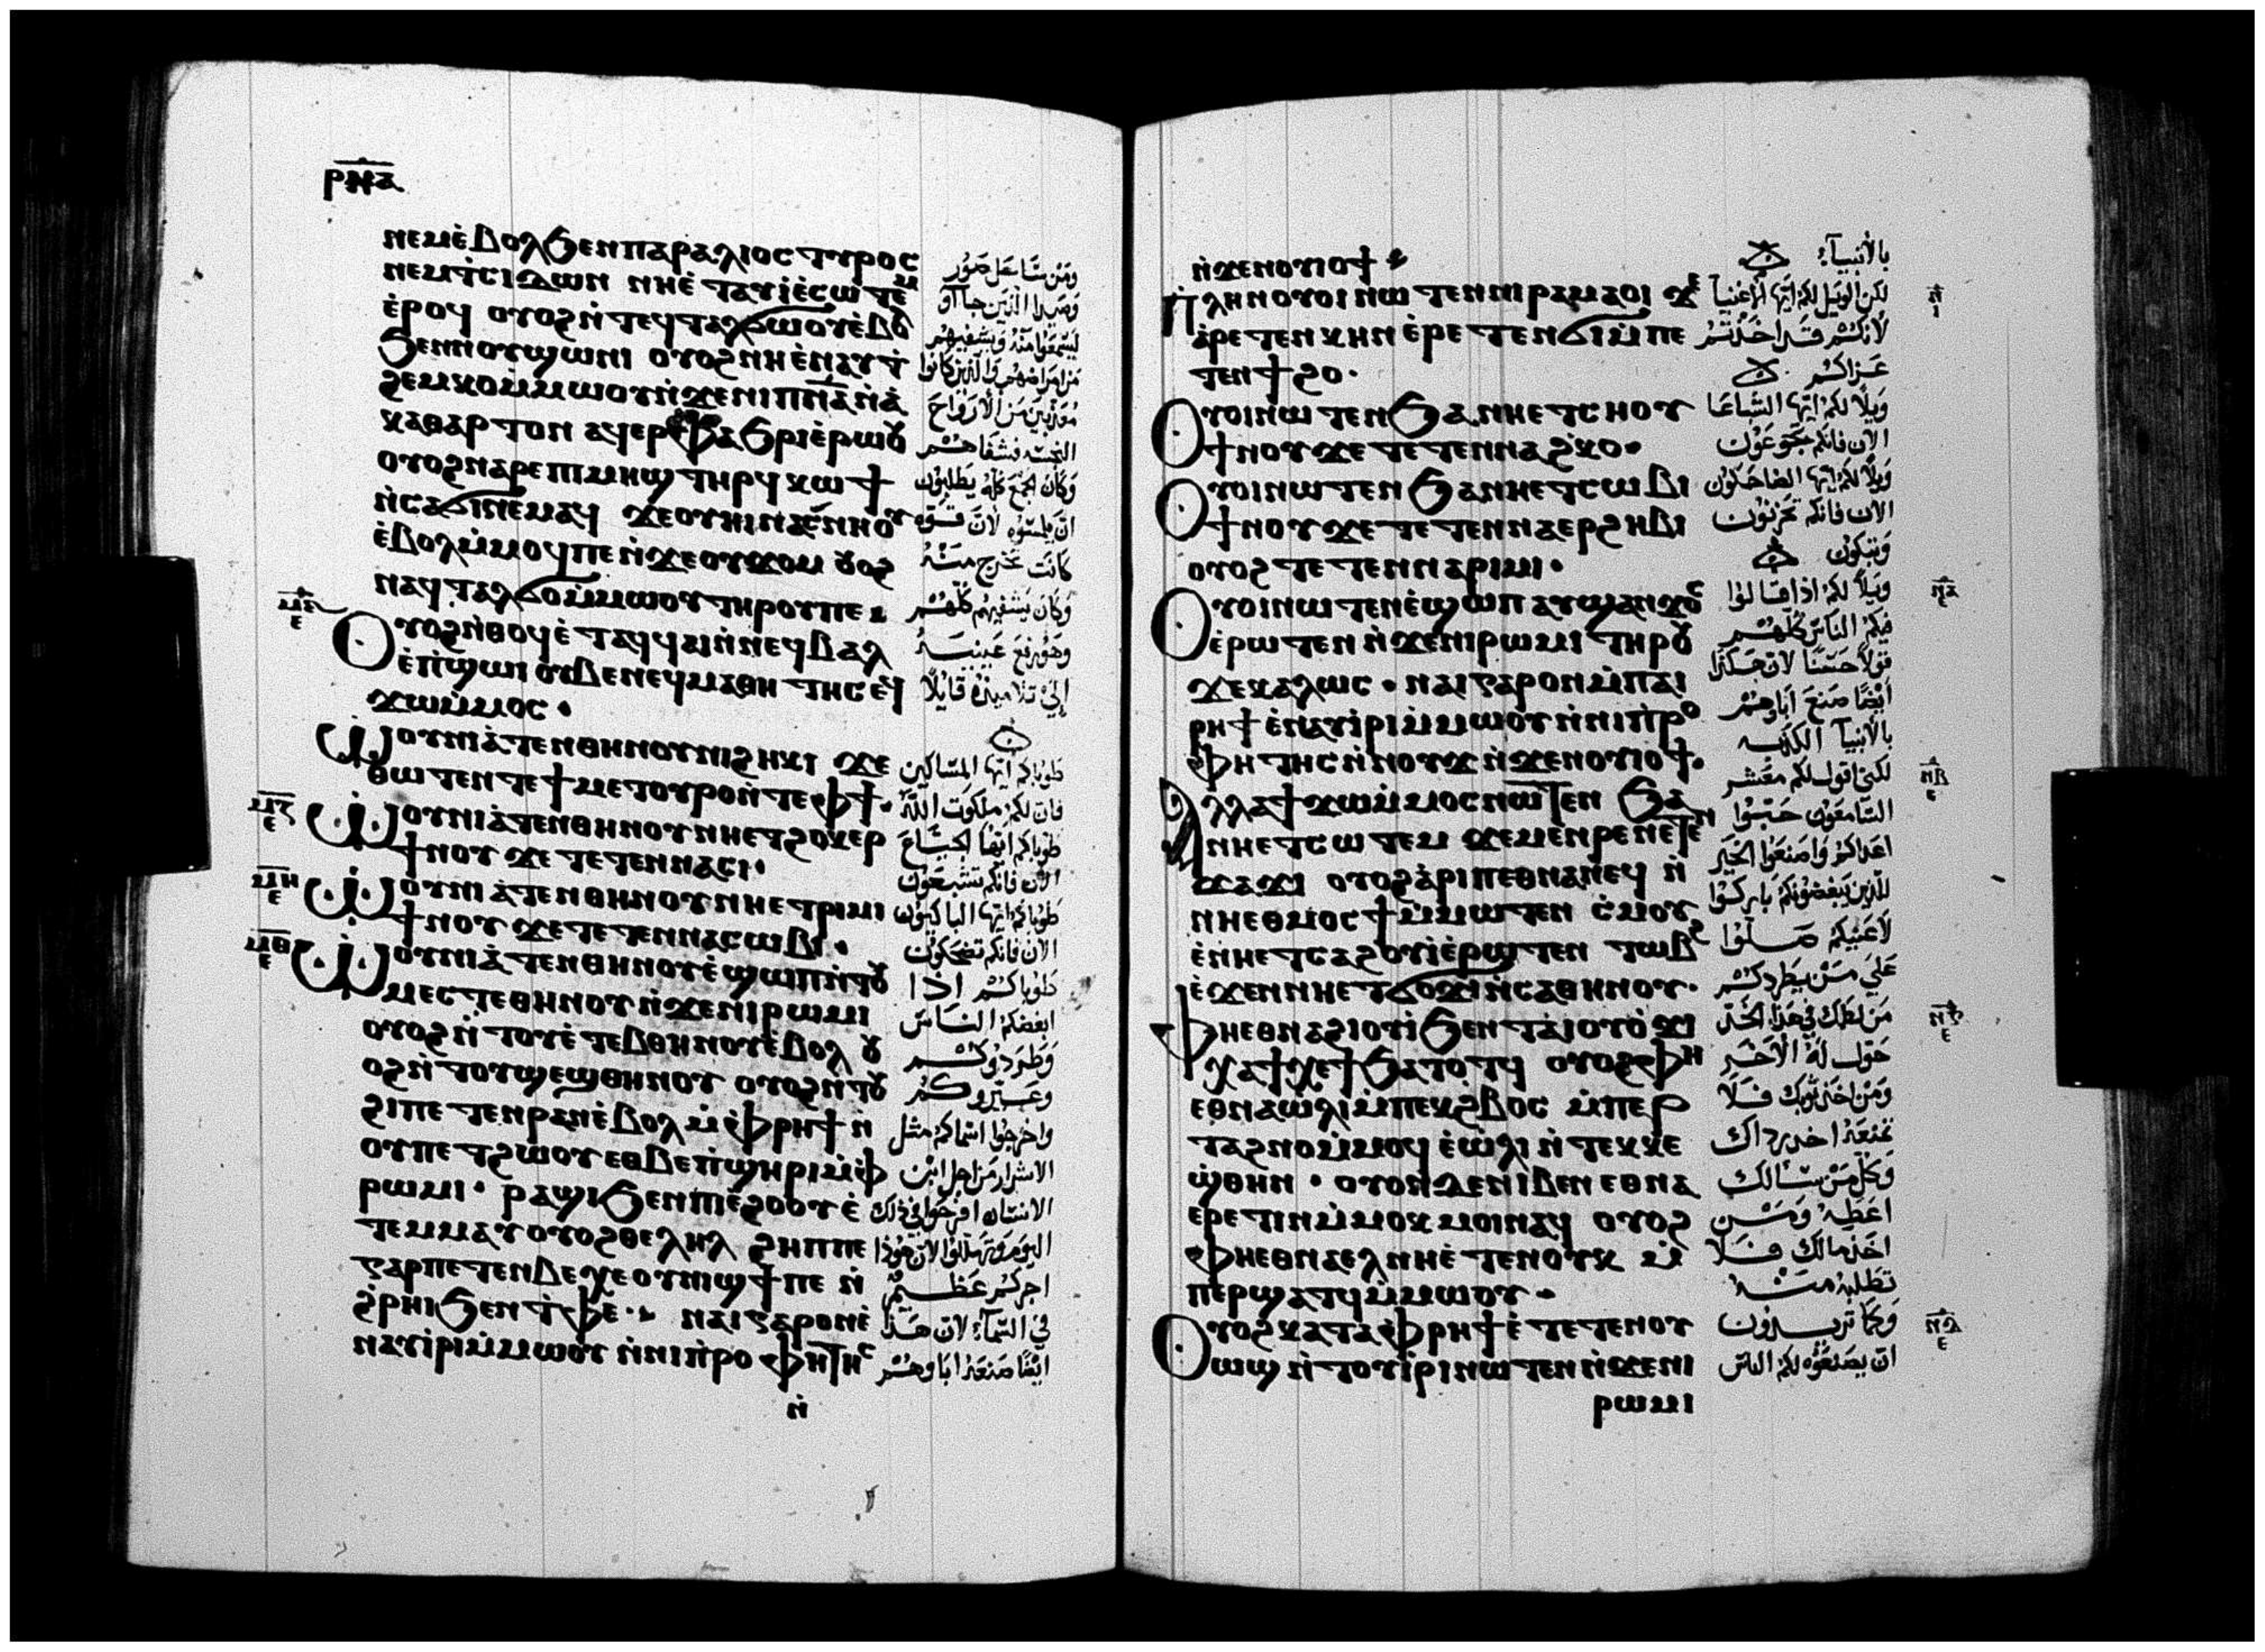 ⲣⲛⲁ
ⲛⲉⲙⲉ̀ⲃⲟⲗϧⲉⲛⲡⲁⲣⲁⲗⲓⲟⲥⲧⲩⲣⲟⲥ
ⲛⲉⲙⲧ̀ⲥⲓⲇⲱⲛ ⲛⲏⲉ̀ ⲧⲁⲩⲓ̀ⲉ̀ⲥⲱⲧⲉⲙ
ⲉ̀ⲣⲟϥ ⲟⲩⲟϩⲛ̀ⲧⲉϥⲧⲁⲗϭⲱⲟⲩⲉ̀ⲃⲟⲗ
ϧⲉⲛⲛⲟⲩϣⲱⲛⲓ ⲟⲩⲟϩⲛⲏⲉ̀ⲛⲁⲩⲧ̀
ϩⲉⲙⲕⲟⲙ̀ⲙⲱⲟⲩⲛ̀ϫⲉⲛⲓⲡⲛ̅ⲁ̅ⲛ̀ⲁ̀
ⲕⲁⲑⲁⲣⲧⲟⲛ ⲁϥⲉⲣⲫⲁϧⲣⲓⲉ̀ⲣⲱⲟⲩ
ⲟⲩⲟϩⲛⲁⲣⲉⲡⲓⲙⲏϣ ⲧⲏⲣϥ ⲕⲱϯ
ⲛ̀ⲥⲁϭⲓⲛⲉⲙⲁϥ ϫⲉⲟⲩⲏⲓⲛⲁⲥⲛⲏⲟⲩ
ⲉ̀ⲃⲟⲗⲙ̀ⲙⲟϥⲡⲉⲛ̀ϫⲉⲟⲩϫⲟⲙ ⲟⲩⲟϩ
ⲛⲁϥⲧⲁⲗϭⲟⲙ̀ⲙⲱⲟⲩⲧⲏⲣⲟⲩⲡⲉ
ⲙⲋ ⲉ
ⲟⲩⲟϩⲛ̀ⲑⲟϥⲉ̀ⲧⲁϥϥⲁⲓⲛ̀ⲛⲉϥⲃⲁⲗ
ⲉ̀ⲡ̀ϣⲱⲓ ⲟⲩⲃⲉⲛⲉϥⲙⲁⲑⲏⲧⲏⲥ ⲉϥ
ϫⲱⲙ̀ⲙⲟⲥ.
ⲱ̀ⲟⲩⲛⲓⲁ̀ⲧⲉⲛⲑⲏⲛⲟⲩⲛⲓϩⲏⲕⲓ ϫⲉ
ⲑⲱⲧⲉⲛⲧⲉϯⲙⲉⲧⲟⲩⲣⲟⲛ̀ⲧⲉⲫϯ.
ⲙⲍ ⲉ
ⲱ̀ⲟⲩⲛⲓⲁ̀ⲧⲉⲛⲑⲏⲛⲟⲩⲛⲏⲉⲧϩⲟⲕⲉⲣ
ϯⲛⲟⲩ ϫⲉ ⲧⲉⲧⲉⲛⲛⲁⲥⲓ.
ⲙⲏ ⲉ
ⲱ̀ⲟⲩⲛⲓⲁ̀ⲧⲉⲛⲑⲏⲛⲟⲩⲛⲏⲉⲧⲣⲓⲙⲓ
ϯⲛⲟⲩ ϫⲉⲧⲉⲧⲉⲛⲛⲁⲥⲱⲃⲓ.
ⲙⲑ ⲉ
ⲱ̀ⲟⲩⲛⲓⲁ̀ⲧⲉⲛⲑⲏⲛⲟⲩⲉ̀ϣⲱⲡⲛ̀ⲧⲟⲩ
ⲙⲉⲥⲧⲉⲑⲏⲛⲟⲩⲛ̀ϫⲉⲛⲓⲣⲱⲙⲓ
ⲟⲩⲟϩⲛ̀ⲧⲟⲩⲉ̀ⲧⲉⲃⲑⲏⲛⲟⲩⲉ̀ⲃⲟⲗ ⲟⲩ
ⲟϩⲛ̀ⲧⲟⲩϣⲉϣⲑⲏⲛⲟⲩ ⲟⲩⲟϩⲛ̀ⲧⲟⲩ
ϩⲓⲡⲉⲧⲉⲛⲣⲁⲛⲉ̀ⲃⲟⲗ ⲙ̀ⲫⲣⲏϯ ⲛ̀
ⲟⲩⲡⲉⲧϩⲱⲟⲩ ⲉⲑⲃⲉⲡ̀ϣⲏⲣⲓⲙ̀ⲫ
ⲣⲱⲙⲓ. ⲣⲁϣⲓϧⲉⲛⲡⲓⲉ̀ϩⲟⲟⲩ ⲉ̀
ⲧⲉⲙⲙⲁⲩⲟⲩⲟϩⲑⲉⲗⲏⲗ ϩⲏⲡⲡⲉ
ⲅⲁⲣⲡⲉⲧⲉⲛⲃⲉⲭⲉⲟⲩⲛⲓϣϯⲡⲉ ⲛ̀
ϩ̀ⲣⲏⲓϧⲉⲛⲧ̀ⲫⲉ. ⲛⲁⲓⲅⲁⲣⲟⲛⲉ̀
ⲛⲁⲩⲓ̀ⲣⲓⲙ̀ⲙⲱⲟⲩ ⲛ̀ⲛⲓⲡ̀ⲣⲟⲫⲏⲧⲏⲥ
ⲛ̀
ومن ساحل صور
وصيدا الذين جاآو
ليسمعوا منه ويشفيهم
من امراضهم والذين كانوا
معذبين من الارواح
النجسه فشفاهم
وكان الجمع كله يطلبون
ان يلمسوه لان قوه
كانت تخرج منه
وكان يشفيهم كلهم
وهو رفع عينيه
إلى تلاميذه قايلا
طوباكم ايها المساكين
فان لكم ملكوت الله
طوباكم ايها الجياع
الآن فانكم تشبعون
طوباكم ايها الباكون
الآن فانكم تضحكون
طوباكم اذا
ابغضكم الناس
وطردوكم
وعيروكم
واخرجوا اسماكم مثل
الاشرار من اجل ابن
الانسان افرحوا في ذلك
اليوم وتهللوا لان هوذا
اجركم عظيم
في السمآء لان هذا
ايضا صنعه اباوهم
ⲛ̀ϫⲉⲛⲟⲩⲓⲟϯ
ⲡⲗⲏⲛⲟⲩⲟⲓⲛⲱⲧⲉⲛⲛⲓⲣⲁⲙⲁⲟⲓ ϫⲉ
ⲁ̀ⲣⲉⲧⲉⲛⲕⲏⲛ ⲉ̀ⲣⲉⲧⲉⲛϭⲓⲙ̀ⲡⲉ
ⲧⲉⲛϯϩⲟ.
ⲟⲩⲟⲓⲛⲱⲧⲉⲛϧⲁⲛⲏⲉⲧⲥⲏⲟⲩ
ϯⲛⲟⲩϫⲉⲧⲉⲧⲉⲛⲛⲁϩ̀ⲕⲟ.
ⲟⲩⲟⲓⲛⲱⲧⲉⲛ ϧⲁⲛⲏⲉⲧⲥⲱⲃⲓ
ϯⲛⲟⲩϫⲉⲧⲉⲧⲉⲛⲛⲁⲉⲣϩⲏⲃⲓ
ⲟⲩⲟϩⲧⲉⲧⲉⲛⲛⲁⲣⲓⲙⲓ.
ⲟⲩⲟⲓⲛⲱⲧⲉⲛⲉ̀ϣⲱⲡ ⲁⲩϣⲁⲛϫⲟⲥ
ⲉ̀ⲣⲱⲧⲉⲛ ⲛ̀ϫⲉⲛⲓⲣⲱⲙⲓ ⲧⲏⲣⲟⲩ
ϫⲉⲕⲁⲗⲱⲥ. ⲛⲁⲓⲅⲁⲣⲟⲛⲙ̀ⲡⲁⲓ
ⲣⲏϯ ⲉ̀ⲛⲁⲩⲓ̀ⲣⲓⲙ̀ⲙⲱⲟⲩⲛ̀ⲛⲓⲡ̀ⲣⲟ
ⲫⲏⲧⲏⲥ ⲛ̀ⲛⲟⲩϫ ⲛ̀ϫⲉⲛⲟⲩⲓⲟϯ.
ⲁⲗⲗⲁϯϫⲱⲙ̀ⲙⲟⲥⲛⲱⲧⲉⲛ ϧⲁ
ⲛⲏⲉⲧⲥⲱⲧⲉⲙ ϫⲉⲙⲉⲛⲣⲉⲛⲉⲧⲉⲛ
ϫⲁϫⲓ ⲟⲩⲟϩⲁ̀ⲣⲓⲡⲉⲑⲛⲁⲛⲉϥ ⲛ̀
ⲛⲏⲉⲑⲙⲟⲥϯⲙ̀ⲙⲱⲧⲉⲛ ⲥ̀ⲙⲟⲩ
ⲉ̀ⲛⲏⲉⲧⲥⲁϩⲟⲩⲓ̀ⲉ̀ⲣⲱⲧⲉⲛ ⲧⲱⲃϩ
ⲉ̀ϫⲉⲛⲛⲏⲉⲧϭⲟϫⲓⲛ̀ⲥⲁⲑⲏⲛⲟⲩ.
ⲫⲏⲉⲑⲛⲁϩⲓⲟⲩⲓ̀ϧⲉⲛⲧⲁⲓⲟⲩⲟ̀ϫⲓ
ⲭⲁϯⲭⲉϯϧⲁⲧⲟⲧϥ ⲟⲩⲟϩⲫⲏ
ⲉⲑⲛⲁⲱⲗⲓⲙ̀ⲡⲉⲕϩⲃⲟⲥ ⲙ̀ⲡⲉⲣ
ⲧⲁϩⲛⲟⲙ̀ⲙⲟϥ ⲉ̀ⲱ̀ⲗⲓ ⲛ̀ⲧⲉⲕⲕⲉ
ϣ̀ⲑⲏⲛ. ⲟⲩⲟⲛⲇⲉⲛⲓⲃⲉⲛ ⲉⲑⲛⲁ
ⲉⲣⲉⲧⲓⲛⲙ̀ⲙⲟⲕ ⲙⲟⲓⲛⲁϥ ⲟⲩⲟϩ
ⲫⲏⲉⲑⲛⲁⲉⲗⲛⲏⲉ̀ⲧⲉⲛⲟⲩⲕ ⲙ̀
ⲡⲉⲣϣⲁⲧϥⲙ̀ⲙⲱⲟⲩ.
ⲟⲩⲟϩⲕⲁⲧⲁⲫⲣⲏϯⲉ̀ⲧⲉⲧⲉⲛⲟⲩ
ⲱϣ ⲛ̀ⲧⲟⲩⲓ̀ⲣⲓⲛⲱⲧⲉⲛⲛ̀ϫⲉⲛⲓ
ⲣⲱⲙⲓ
بالأنبيآء
لكن الويل لكم ايها الاغنيآ
لأنكم قد اخذتم
عزاكم
ويلا لكم ايها الشباعا
الان فانكم تجوعون
ويلا لكم ايها الضاحكون
الان فانكم تحزنون
وتبكون
ويلا لكم اذا قالوا
فيكم الناس كلهم
قولا حسنا لان هكذا
ايضا صنع اباوهم
بالأنبيآ الكذبه
لكني اقول لكم معشر
السامعون حبوا
اعداكم واصنعوا الخير
للذين يبغضونكم باركوا
لاعنيكم صلوا
على من يطردكم
من لطمك في هذا الخد
حول له الآخر
ومن اخذ ثوبك فلا
تمنعه اخذ رداك
وكل من سألك
اعطيه ومن
اخذ مالك فلا
تطلبه منه
وكما تريدون
ان يصنعوه لكم الناس
ⲛ ⲓ
ⲛⲁ ⲉ
ⲛⲃ ⲉ
ⲛⲅ ⲉ
ⲛⲇ ⲉ